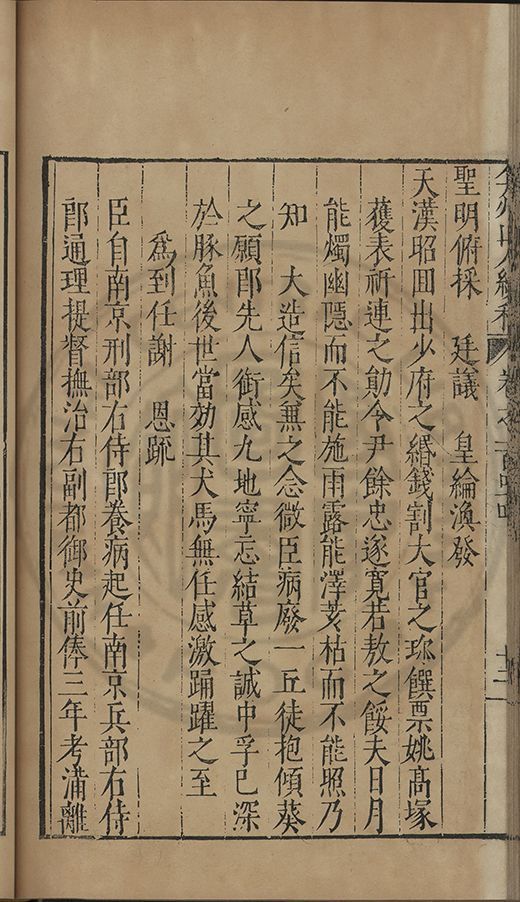 弇州山人續稿 卷之一百四十四 十二
聖明俯採 廷議 皇綸渙發
天漢昭囬出少府之緡錢割大官之珎饌票姚高塚
蒦表祈連之勛令尹餘忠遂寛若敖之餒夫日月
能燭幽隠而不能施雨露能澤荄枯而不能照乃
知 大造信矣無之念微臣病廢一丘徒抱傾葵
之願郎先人銜感九地寧忘結草之誠中孚已深
於豚魚後世當効其犬馬無任感激踊躍之至
爲到任謝 恩疏
臣自南京刑部右侍郎養病起任南京兵部右侍
郎通理提督撫治右副都御史前俸三年考滿離